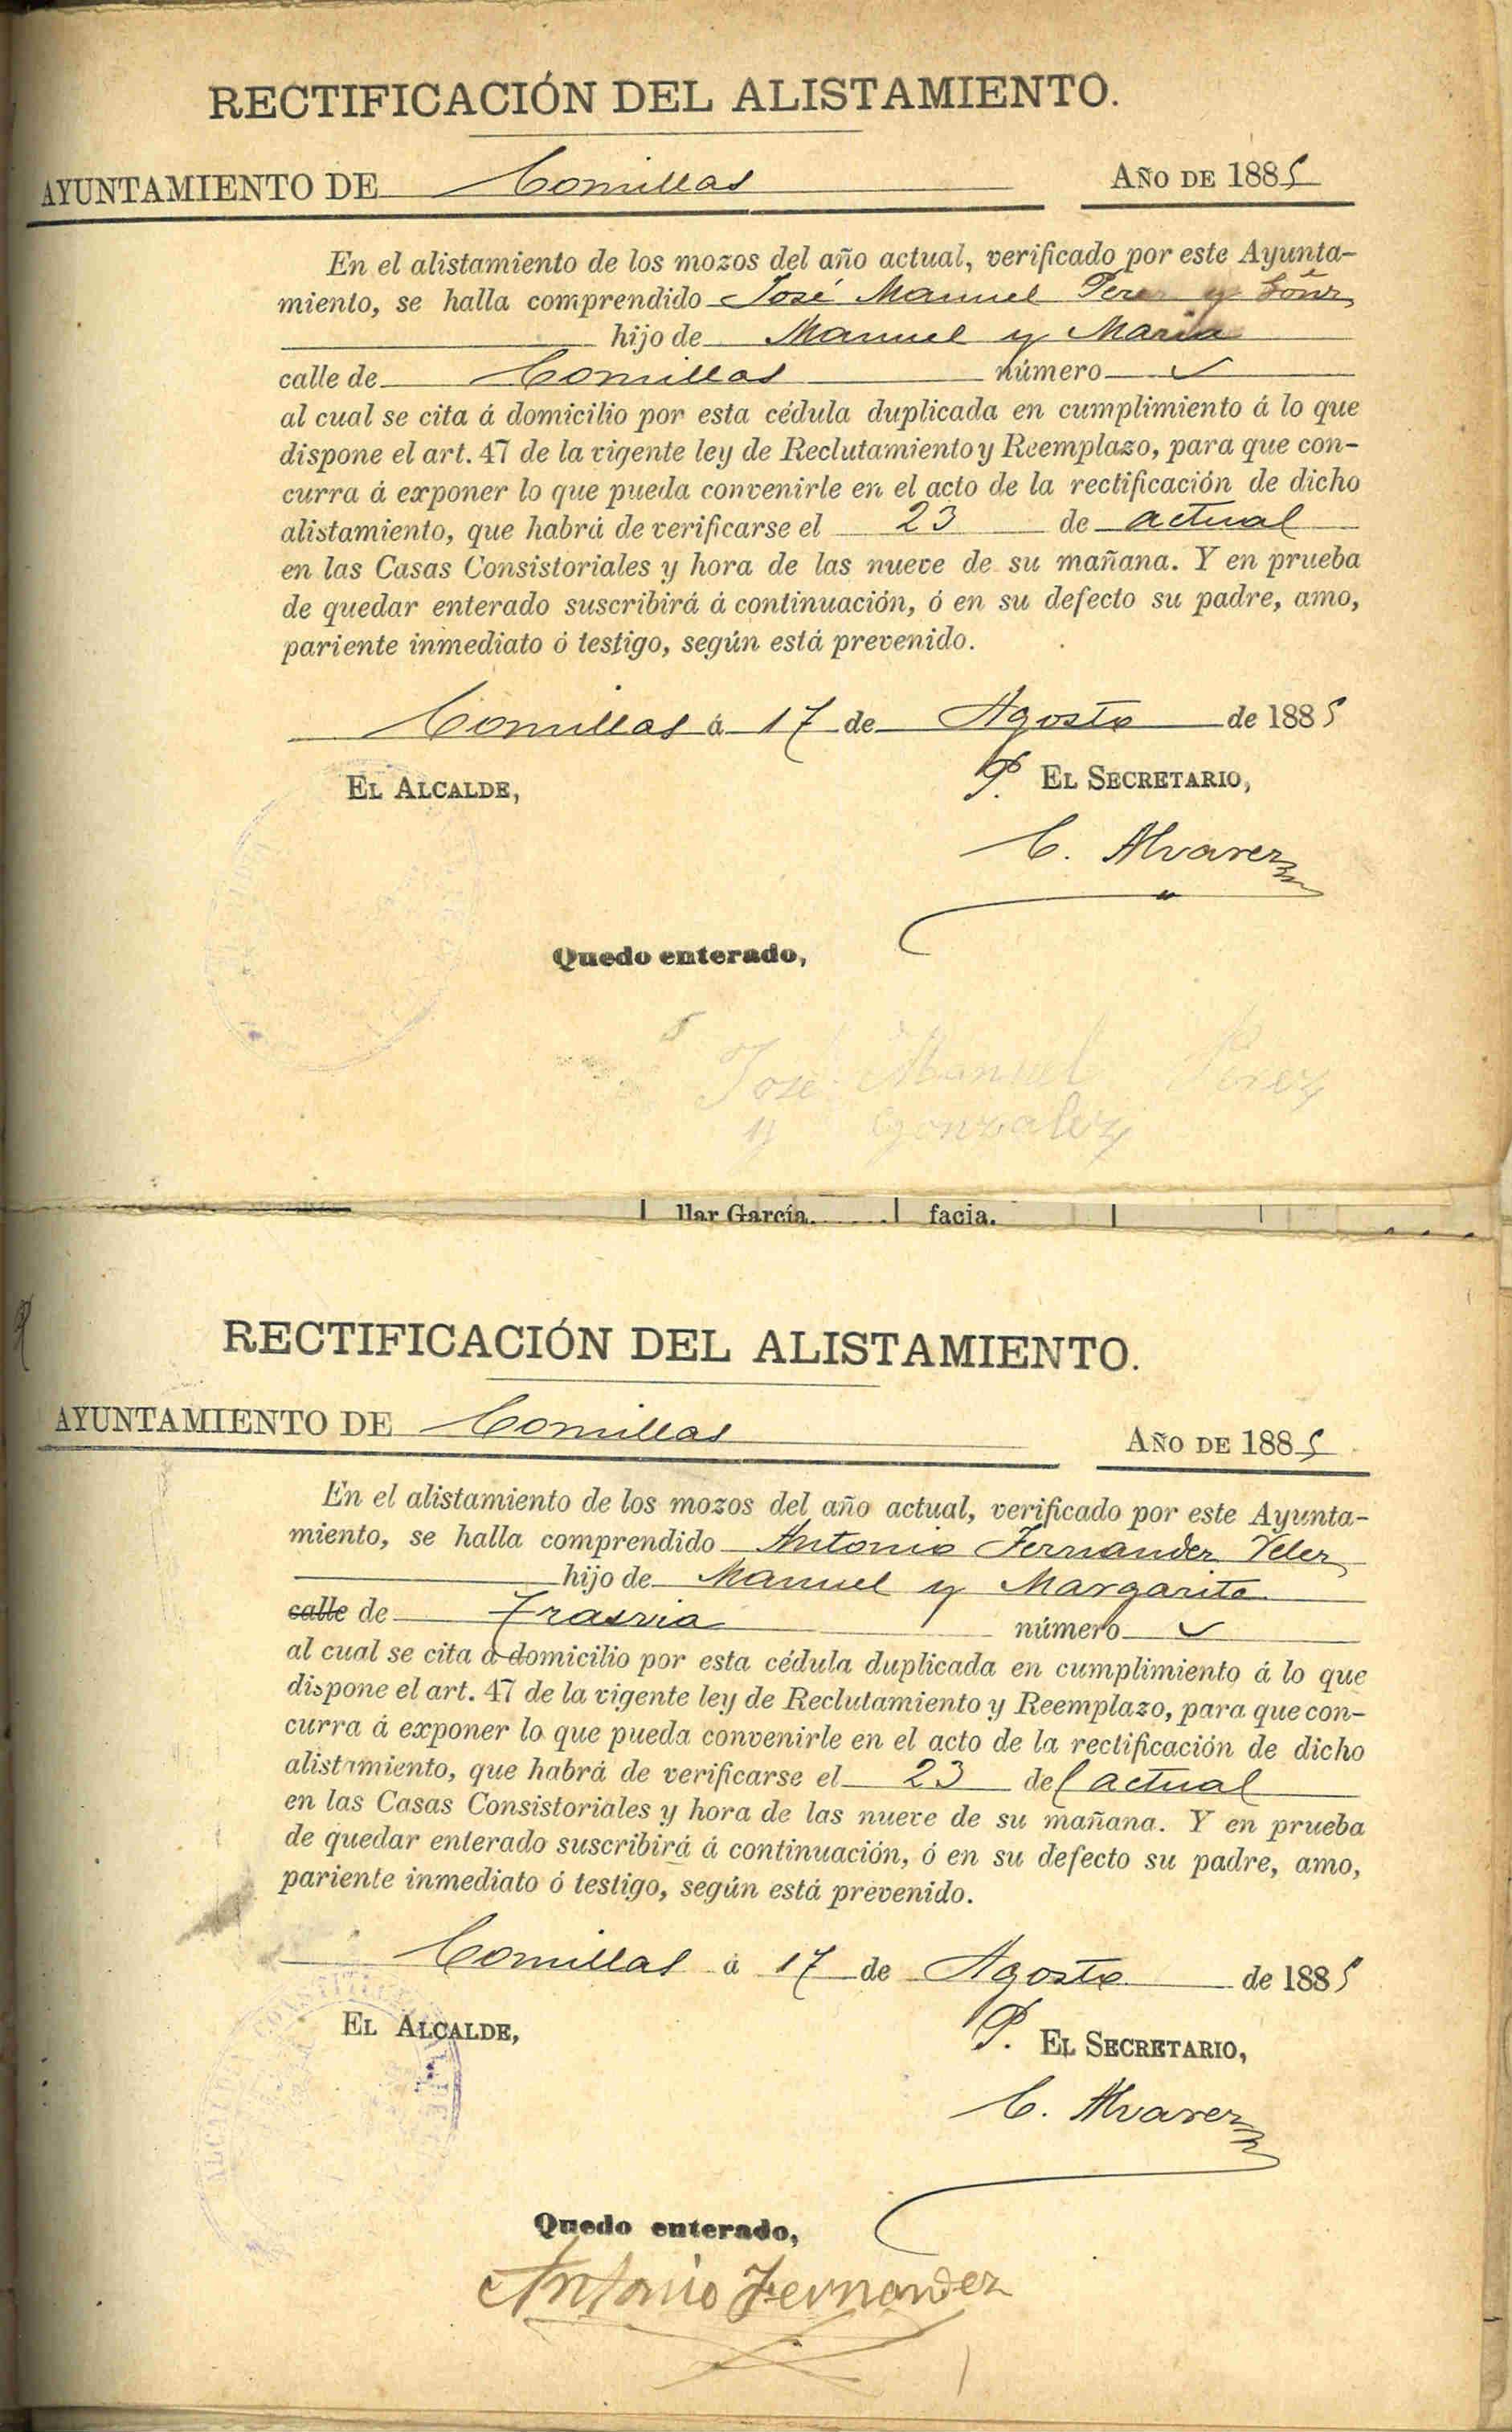 RECTIFICACIÓN DEL ALISTAMIENTO.
AYUNTAMIENTO DE Comillas AÑO DE 1885
En el alistamiento de los mozos del año actual, verificado por este Ayunta-
miento, se halla comprendido José Manuel Perez y
hijo de Manuel y Maria
calle de Comillas número
al cual se cita á domicilio por esta cédula duplicada en cumplimiento á lo que
dispone el art. 47 de la vigente ley de Reclutamiento y Reemplazo, para que con-
curra á exponer lo que pueda convenirle en el acto de la rectificación de dicho
alistamiento, que habrá de verificarse el 23 de actual
en las Casas Consistoriales y hora de las nueve de su mañana. Y en prueba
de quedar enterado suscribirá á continuación, ó en su defecto su padre, amo,
pariente inmediato ó testigo, según está prevenido.
Comillas á 17 de Agosto de 1885
EL ALCALDE, P. EL SECRETARIO,
C. Alvarez
Quedo enterado,
José Manuel Perez
y Gonzalez
llar García. facia.
RECTIFICACIÓN DEL ALISTAMIENTO.
AYUNTAMIENTO DE Comillas AÑO DE 1885
En el alistamiento de los mozos del año actual, verificado por este Ayunta-
miento, se halla comprendido Antonio Fernandez Velez
hijo de Manuel y Margarita
calle de Trasvia número
al cual se cita á domicilio por esta cédula duplicada en cumplimiento á lo que
dispone el art. 47 de la vigente ley de Reclutamiento y Reemplazo, para que con-
curra á exponer lo que pueda convenirle en el acto de la rectificación de dicho
alistamiento, que habrá de verificarse el 23 del actual
en las Casas Consistoriales y hora de las nueve de su mañana. Y en prueba
de quedar enterado suscribirá á continuación, ó en su defecto su padre, amo,
pariente inmediato ó testigo, según está prevenido.
Comillas á 17 de Agosto de 1885
EL ALCALDE, P. EL SECRETARIO,
C. Alvarez
Quedo enterado,
Antonio Fernandez